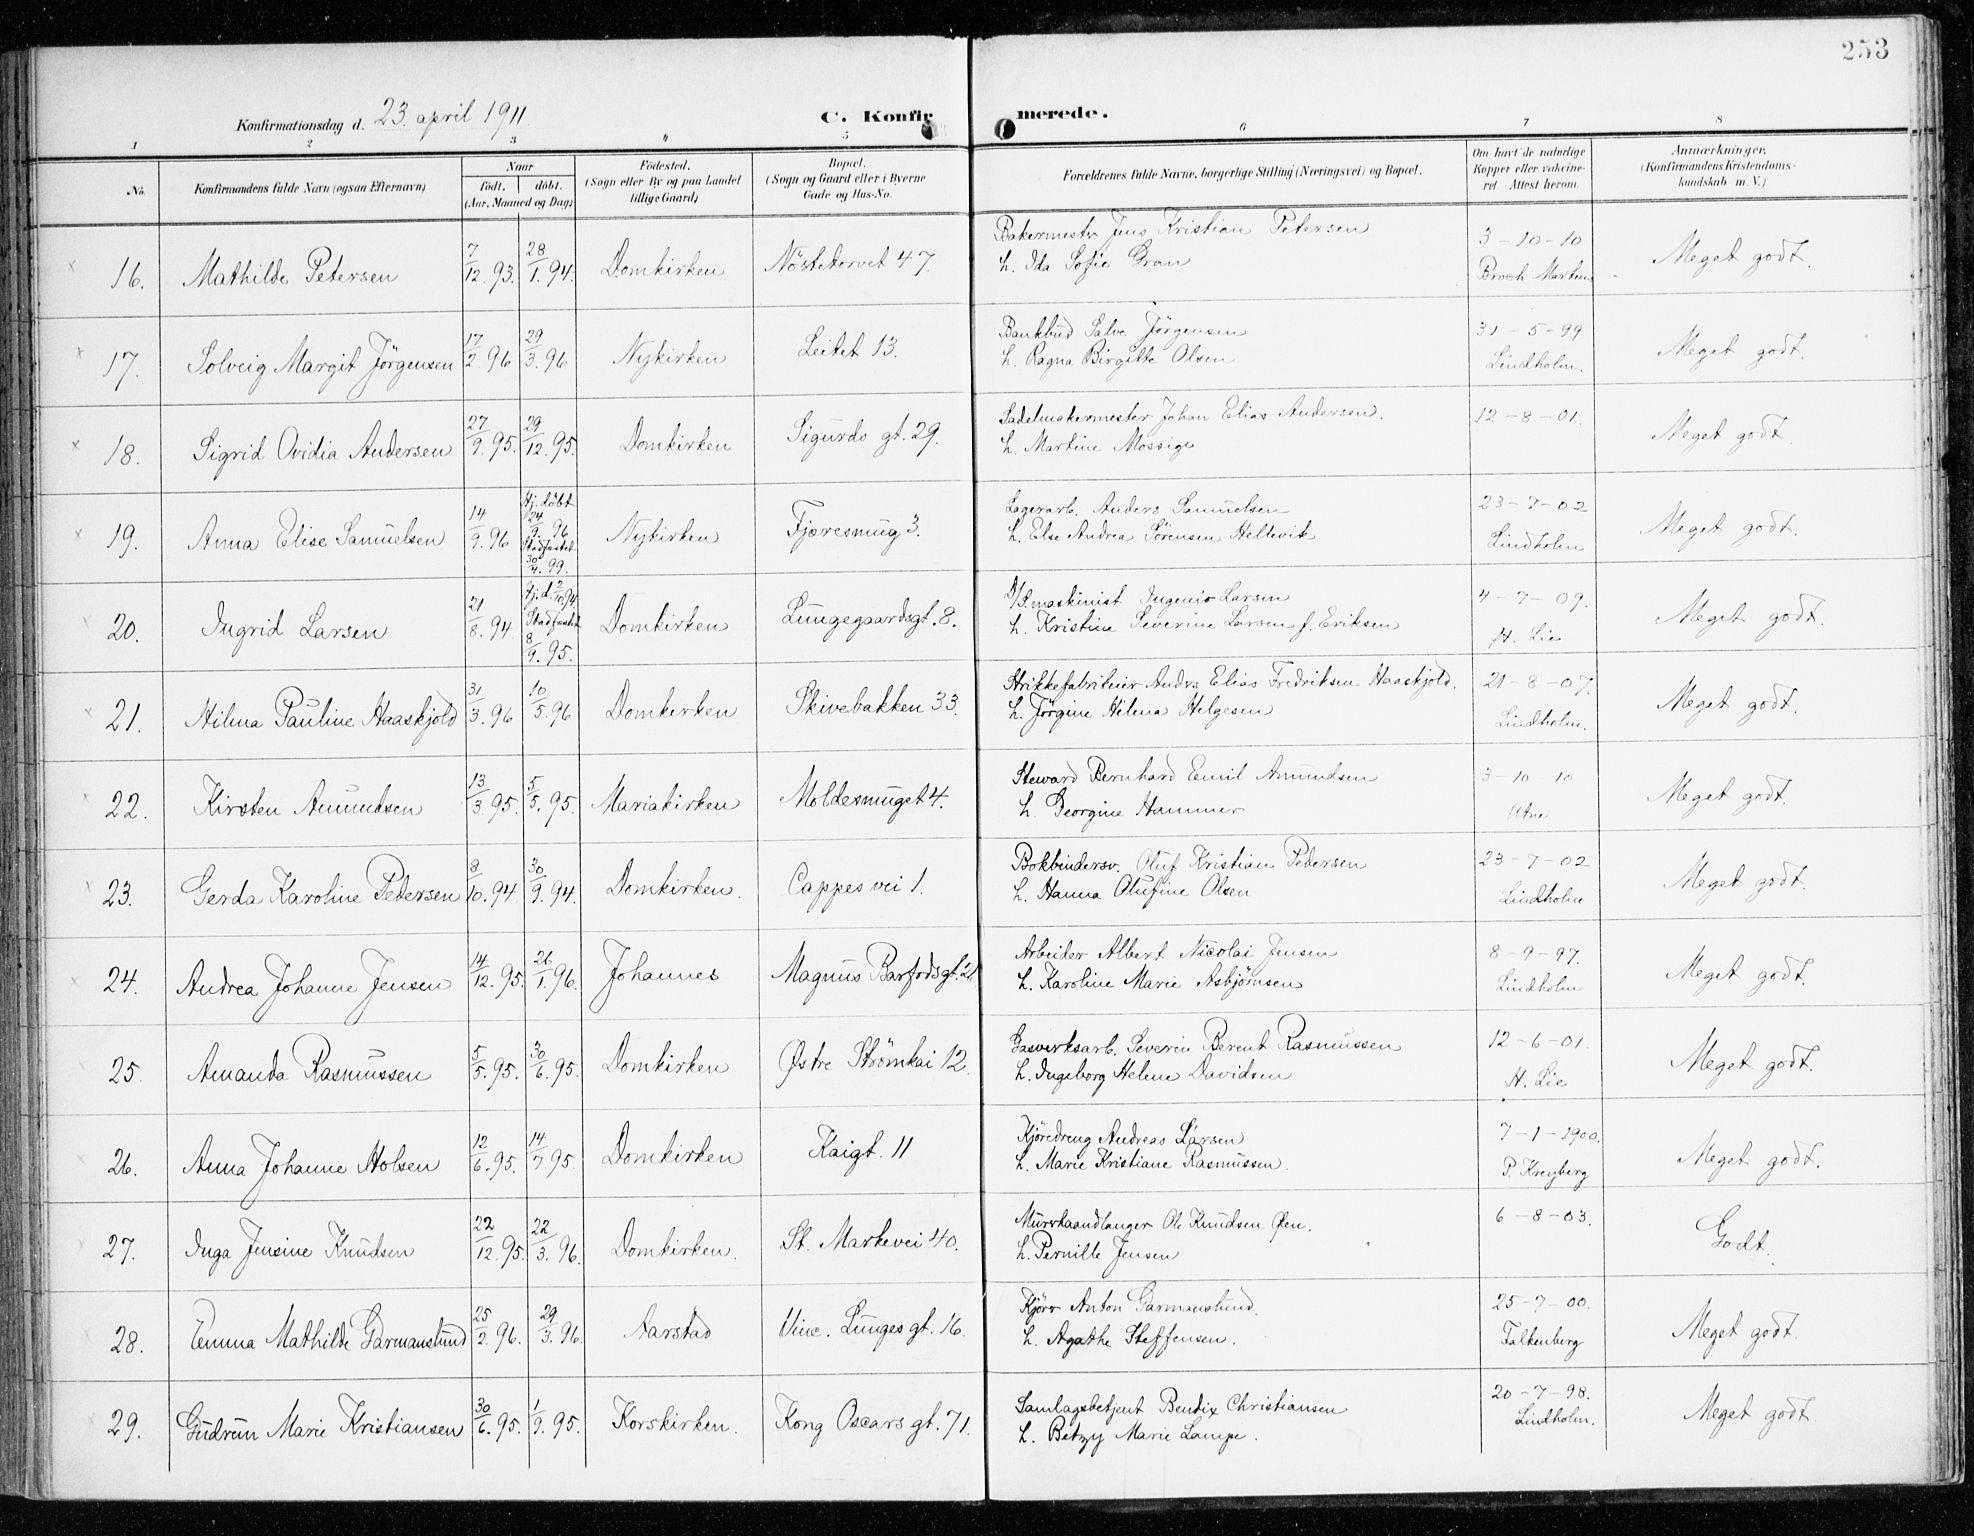 253
Konfirmationsdag d. 23. april 1911.
C. Konfirmerede.
1 2 3 4 5 6 7 8
No. Konfirmandens fulde Navn (ogsaa Efternavn) Naar födt. döbt. (Aar, Maaned og Dag) Födested. (Sogn eller By og paa Landet tillige Gaard) Bopæl. (Sogn og Gaard eller i Byerne Gade og Hus-No. Forældrenes fulde Navne, borgerlige Stilling (Næringsvei) og Bopæl. Om havt de naturlige Kopper eller vakcineret. Attest herom. Anmærkninger. (Konfirmandens Kristendomskundskab m. V.)
16. Mathilde Petersen 7/12. 93. 28/1. 94. Domkirken Nöstetorvet 47. Bakermester Jens Kristian Petersen 3-10-10 Meget godt.
h. Ida Sofie Gran Broch Martens
17. Solveig Margit Jörgensen 17/2. 96 29/3. 96 Nykirken Leitet 13. Bankbud Salve Jörgensen 31-5-99 Meget godt.
h. Ragna Birgitte Olsen Lindholm.
18. Sigrid Ovidia Andersen 27/9. 95. 29/12. 95. Domkirken Sigurds gt. 29. Sadelmakermester Johan Elias Andersen. 12-8-01. Meget godt.
h. Martine Mossige
19. Anna Elise Samuelsen 14/9. 96 Hj. döbt 24/9. 96 Stadfæstet 30/4. 99. Nykirken Fjæresmug 3. Lagerarb. Anders Samuelsen 23-7-02 Meget godt.
h. Else Andrea Sörensen Hellevik Lindholm
20. Ingrid Larsen 21/8. 94. Hj. d. 2/10 94. Stadfæstet 8/9. 95. Domkirken Lungegaardsgt. 8. D/S. maskinist Ingenio Larsen 4-7-09. Meget godt.
h. Kristine Severine Larsen f. Eriksen H. Lie
21. Hilma Pauline Haaskjold 31/3. 96 10/5. 96 Domkirken Skivebakken 33. Strikkefabrikeier Andrs Elias Fredriksen Haaskjold. 21-8-07. Meget godt.
h. Jörgine Hilena Helgesen Lindholm.
22. Kirsten Amundsen 13/3. 95. 5/5. 95. Mariakirken Moldesmuget 4. Steward Bernhard Emil Amundsen 3-10-10 Meget godt.
h. Georgine Hammer Utne
23. Gerda Karoline Pedersen 8/10. 94. 30/9. 94. Domkirken. Cappes vei 1. Bokbindersv. Oluf Kristian Pedersen 23-7-02 Meget godt.
h. Hanna Olufine Olsen Lindholm
24. Andrea Johanne Jensen 14/12. 95. 26/1. 96. Johannes Magnus Barfodsgt. 21 Arbeider Albert Nicolai Jensen 8-9-97. Meget godt.
h. Karoline Marie Asbjörnsen Lindholm
25. Amanda Rasmussen 5/5. 95. 30/6. 95. Domkirken Østre Strömkai 12. Gasverksarb. Severin Berent Rasmussen 12-6-01. Meget godt.
h. Ingeborg Helene Davidsen H. Lie
26. Anna Johanne Holsen 12/6. 95. 14/7 95. Domkirken Kaigt. 11 Kjöredreng Andreas Larsen 7-1-1900. Meget godt.
h. Marie Kristiane Rasmussen. P. Kreyberg
27. Inga Jensine Knudsen 22/12. 95. 22/3. 96. Domkirken. St. Markevei 40. Murerhaandlanger Ole Knudsen Øen. 6-8-03. Godt.
h. Pernille Jensen
28. Emma Mathilde Garmanslund 25/2. 96. 29/3. 96. Aarstad Vinc. Lunges gt. 16. Kjörer Anton Garmanslund. 25-7-00. Meget godt.
h. Agathe Steffensen. Falkenberg
29. Gudrun Marie Kristiansen 30/6. 95. 1/9. 95. Korskirken. Kong Oscars gt. 71. Samlagsbetjent Bendix Christiansen 20-7-98. Meget godt.
h. Betzy Marie Lampe. Lindholm.